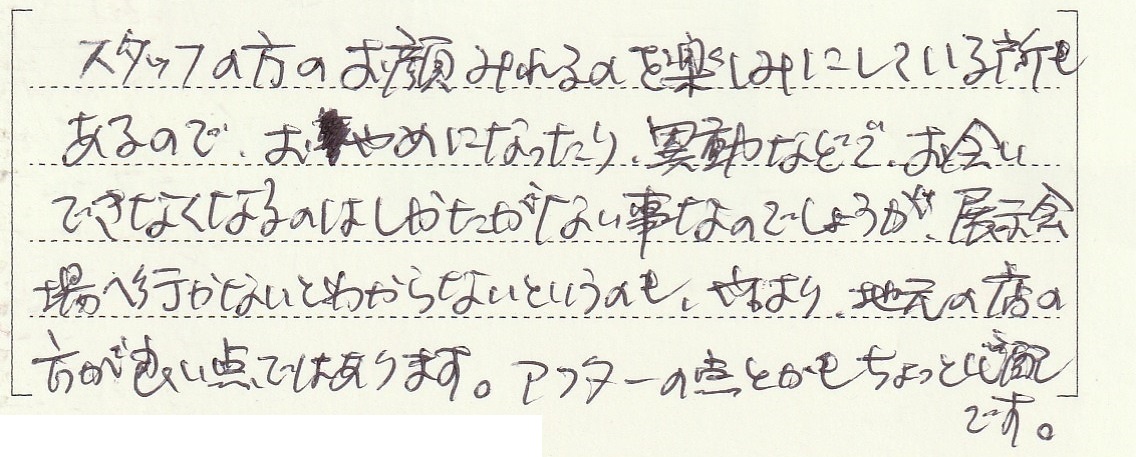 スタッフの方のお顔みれるのを楽しみにしている所も
あるので、おやめになったり、異動などで、お会い
できなくなるのはしかたがない事なのでしょうが、展示会
場へ行かないとわからないというのも、やはり、地元の店の
方が良い点ではあります。アフターの点とかもちょっと心配
です。